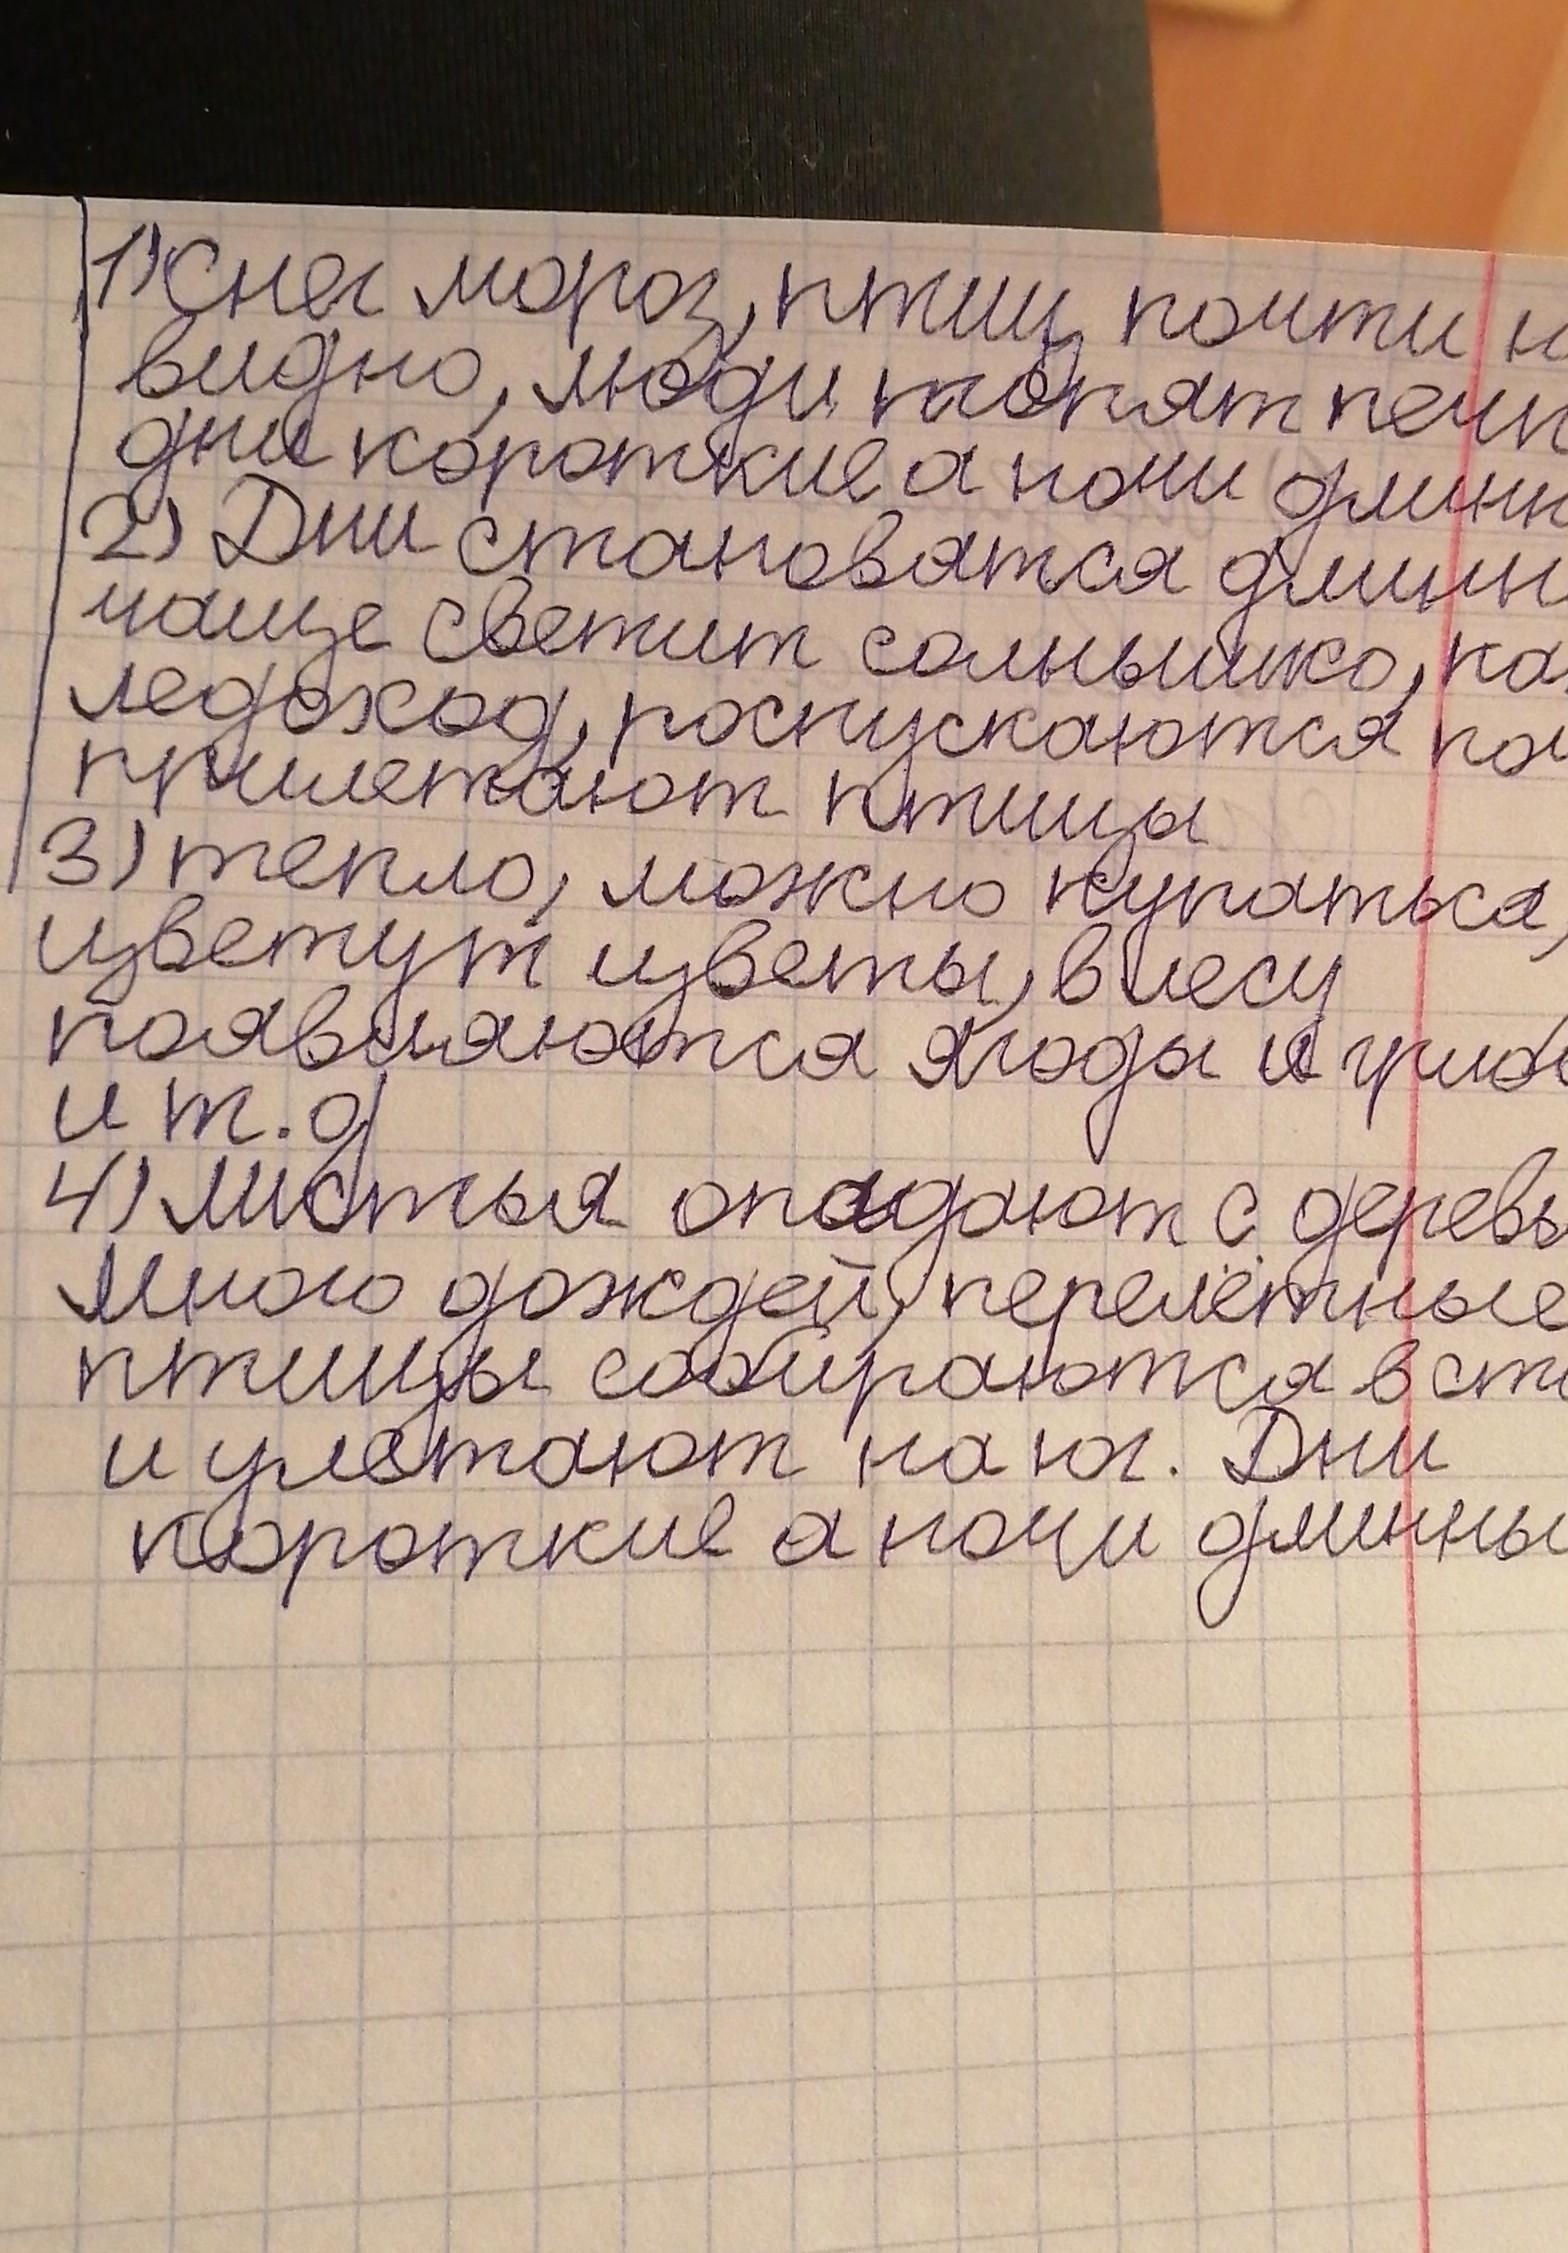 1) Снег мороз, птиц почти н
видно, люди топят печи
дни короткие а ночи длинн
2) Дни становятся длинн
чаще светит солнышко,
ледоход, роспускаются по
прилетают птицы
3) тепло, можно купаться,
цветут цветы, в лесу
появляются ягоды и гриб
и т.д
4) листья опадают с деревь
Много дождей, перелётные
птицы собираются в ст
и улетают на юг. Дни
короткие а ночи длинны